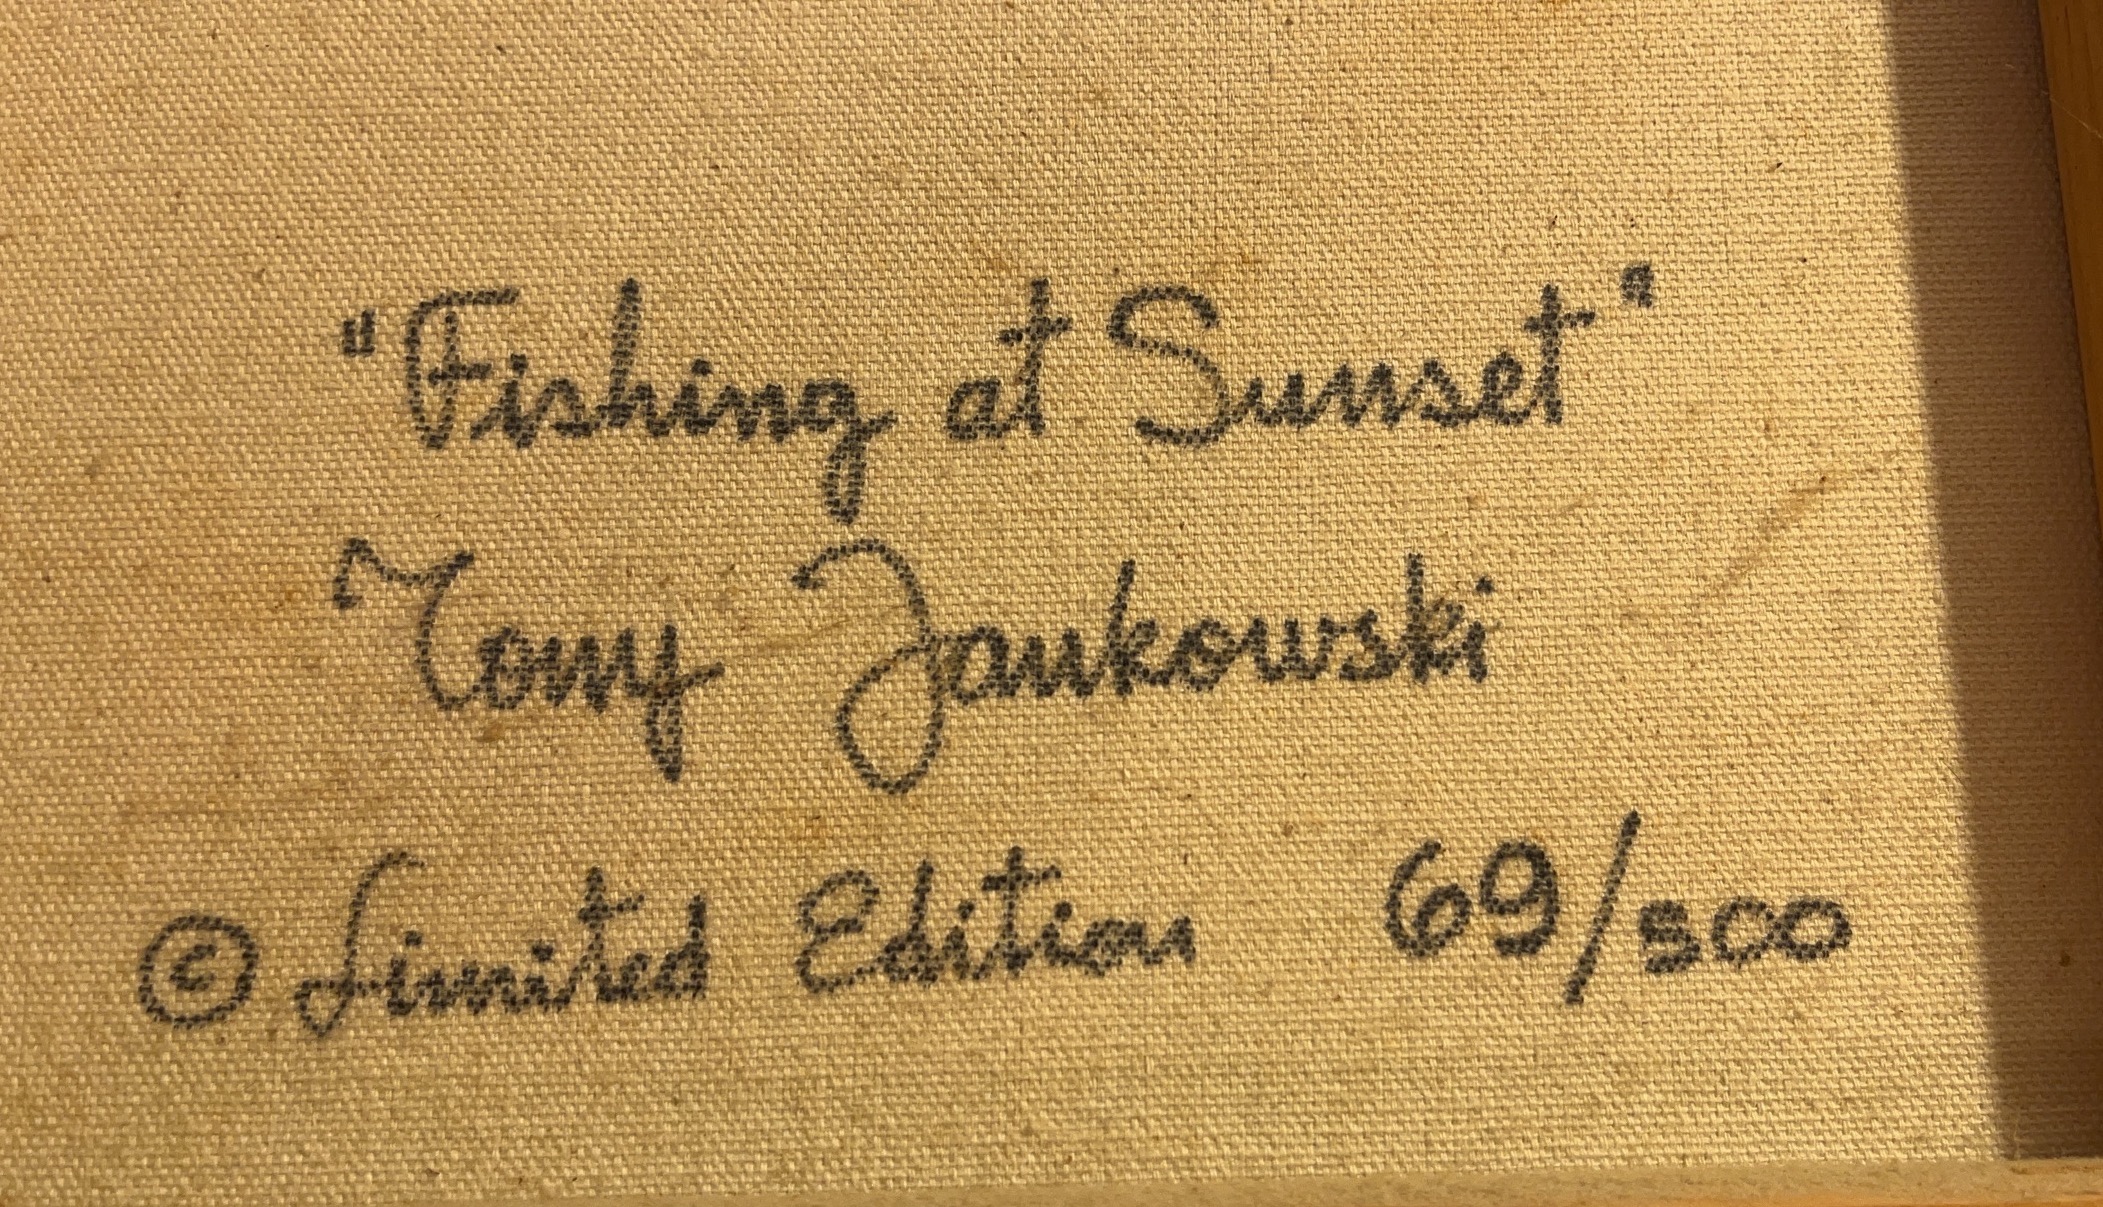 "Fishing at Sunset"
Tony Jankowski
© Limited Edition 69/500